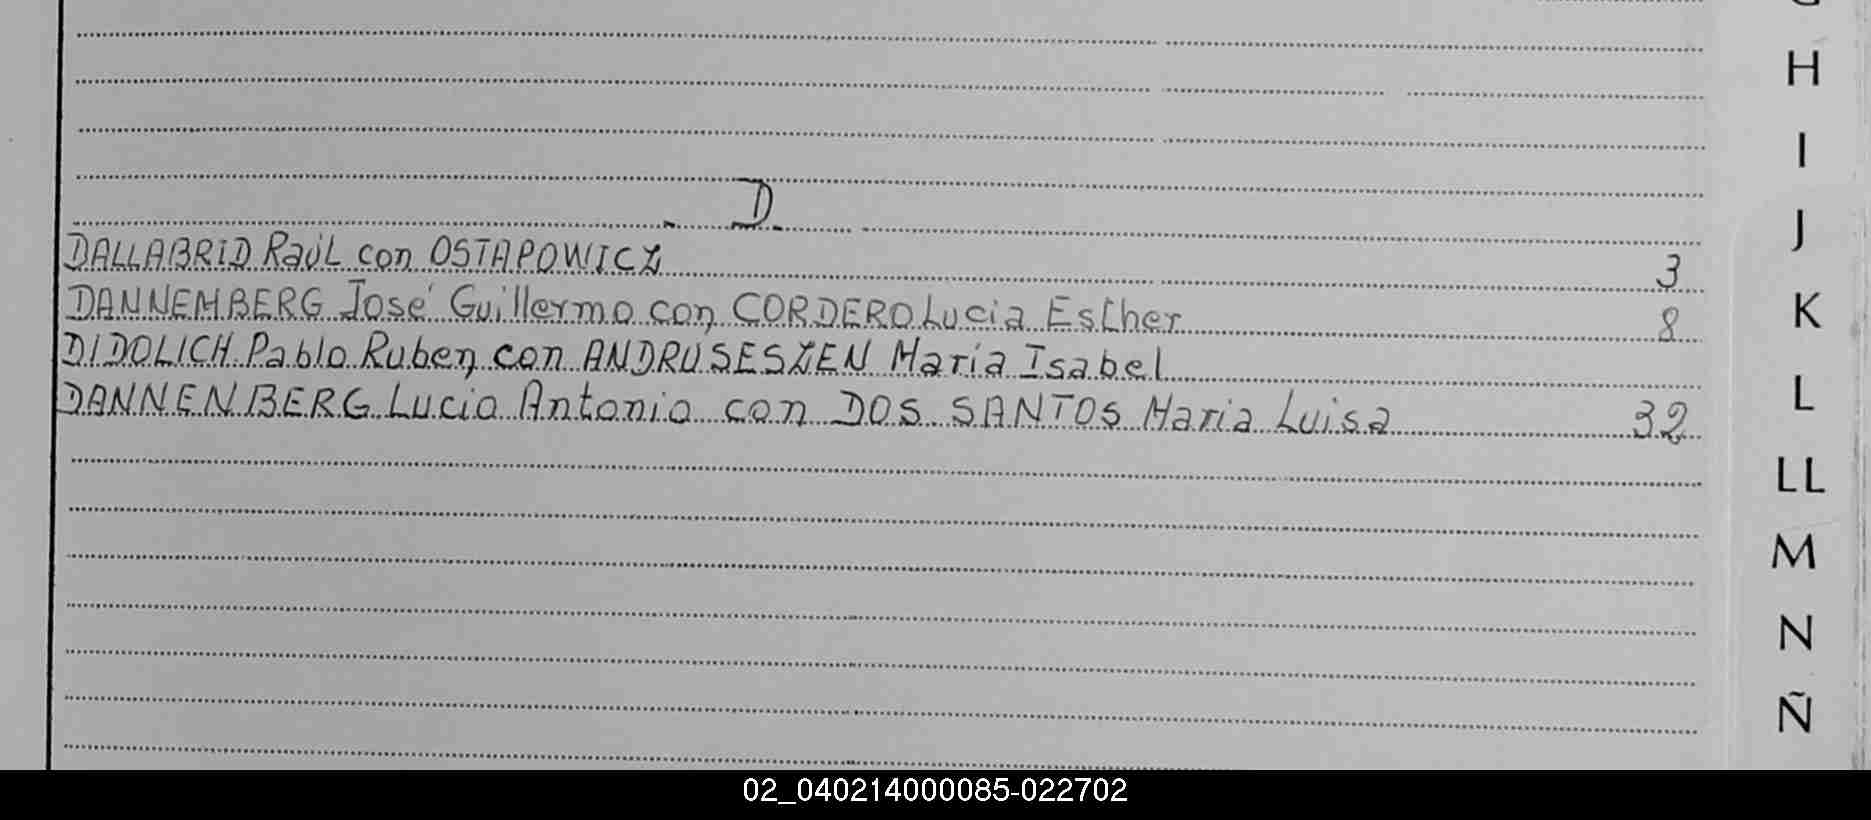 H
I
- D -
DALLABRID Raúl con OSTAPOWICZ 3
J
DANNEMBERG José Guillermo con CORDERO Lucia Esther 8
K
DIDOLICH Pablo Ruben con ANDRUSESZEN Maria Isabel
DANNENBERG Lucio Antonio con DOS SANTOS Maria Luisa 32
L
LL
M
N
Ñ
02_040214000085-022702